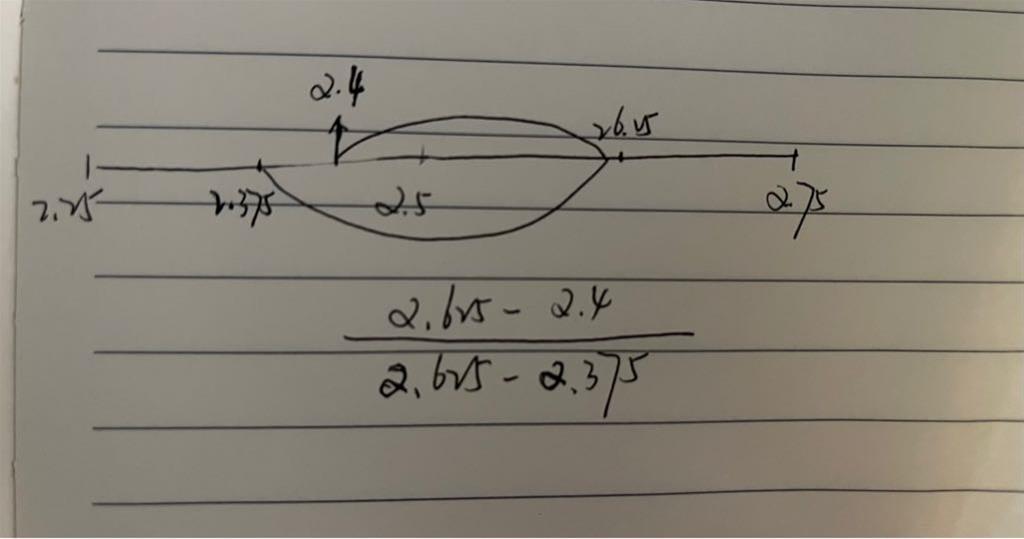 2.4
26.25
2.25 2.375 2.5 2.75
2.625 - 2.4
2.625 - 2.375